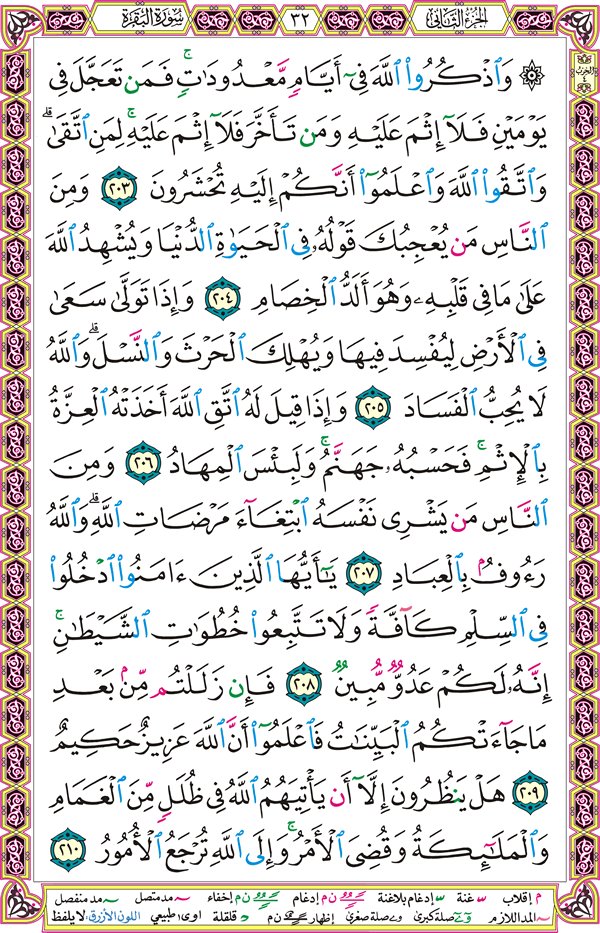 الجزء الثاني ٣٢ سورة البقرة
الحزب ٤
۞ وَٱذْكُرُوا۟ ٱللَّهَ فِىٓ أَيَّامٍ مَّعْدُودَٰتٍ ۚ فَمَن تَعَجَّلَ فِى
يَوْمَيْنِ فَلَآ إِثْمَ عَلَيْهِ وَمَن تَأَخَّرَ فَلَآ إِثْمَ عَلَيْهِ ۚ لِمَنِ ٱتَّقَىٰ ۗ
وَٱتَّقُوا۟ ٱللَّهَ وَٱعْلَمُوٓا۟ أَنَّكُمْ إِلَيْهِ تُحْشَرُونَ ٢٠٣ وَمِنَ
ٱلنَّاسِ مَن يُعْجِبُكَ قَوْلُهُۥ فِى ٱلْحَيَوٰةِ ٱلدُّنْيَا وَيُشْهِدُ ٱللَّهَ
عَلَىٰ مَا فِى قَلْبِهِۦ وَهُوَ أَلَدُّ ٱلْخِصَامِ ٢٠٤ وَإِذَا تَوَلَّىٰ سَعَىٰ
فِى ٱلْأَرْضِ لِيُفْسِدَ فِيهَا وَيُهْلِكَ ٱلْحَرْثَ وَٱلنَّسْلَ ۗ وَٱللَّهُ
لَا يُحِبُّ ٱلْفَسَادَ ٢٠٥ وَإِذَا قِيلَ لَهُ ٱتَّقِ ٱللَّهَ أَخَذَتْهُ ٱلْعِزَّةُ
بِٱلْإِثْمِ ۚ فَحَسْبُهُۥ جَهَنَّمُ ۚ وَلَبِئْسَ ٱلْمِهَادُ ٢٠٦ وَمِنَ
ٱلنَّاسِ مَن يَشْرِى نَفْسَهُ ٱبْتِغَآءَ مَرْضَاتِ ٱللَّهِ ۗ وَٱللَّهُ
رَءُوفٌۢ بِٱلْعِبَادِ ٢٠٧ يَٰٓأَيُّهَا ٱلَّذِينَ ءَامَنُوا۟ ٱدْخُلُوا۟
فِى ٱلسِّلْمِ كَآفَّةً وَلَا تَتَّبِعُوا۟ خُطُوَٰتِ ٱلشَّيْطَٰنِ ۚ
إِنَّهُۥ لَكُمْ عَدُوٌّ مُّبِينٌ ٢٠٨ فَإِن زَلَلْتُم مِّنۢ بَعْدِ
مَا جَآءَتْكُمُ ٱلْبَيِّنَٰتُ فَٱعْلَمُوٓا۟ أَنَّ ٱللَّهَ عَزِيزٌ حَكِيمٌ
٢٠٩ هَلْ يَنظُرُونَ إِلَّآ أَن يَأْتِيَهُمُ ٱللَّهُ فِى ظُلَلٍ مِّنَ ٱلْغَمَامِ
وَٱلْمَلَٰٓئِكَةُ وَقُضِىَ ٱلْأَمْرُ ۚ وَإِلَى ٱللَّهِ تُرْجَعُ ٱلْأُمُورُ ٢١٠
م إقلاب غنة إدغام بلاغنة ن م إدغام ن م إخفاء مد متصل مد منفصل
المد اللازم صلة كبرى صلة صغرى إظهار ن م قلقلة اوى طبيعي اللون الأزرق: لا يلفظ